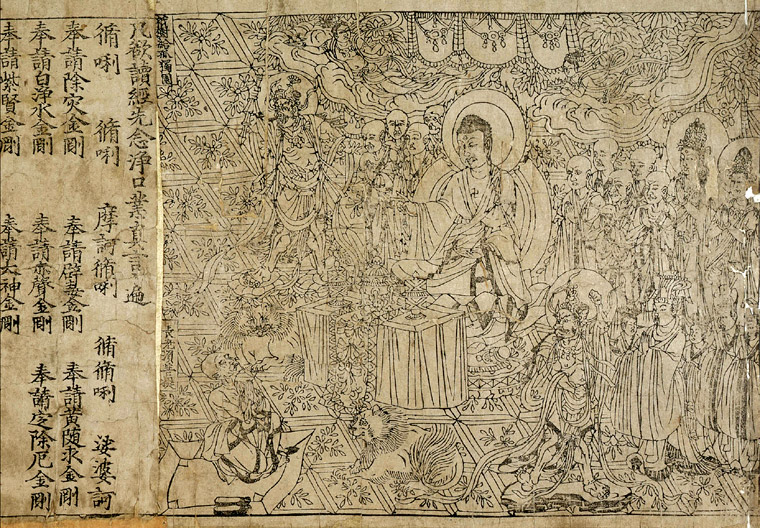 祇樹給孤獨園
長老須菩提
凡欲讀經先念淨口業真言遍
脩唎 脩唎 摩訶脩唎 脩脩唎 娑婆訶
奉請除灾金剛 奉請辟毒金剛 奉請黃隨求金剛
奉請白淨水金剛 奉請赤聲金剛 奉請定除厄金剛
奉請紫賢金剛 奉請大神金剛